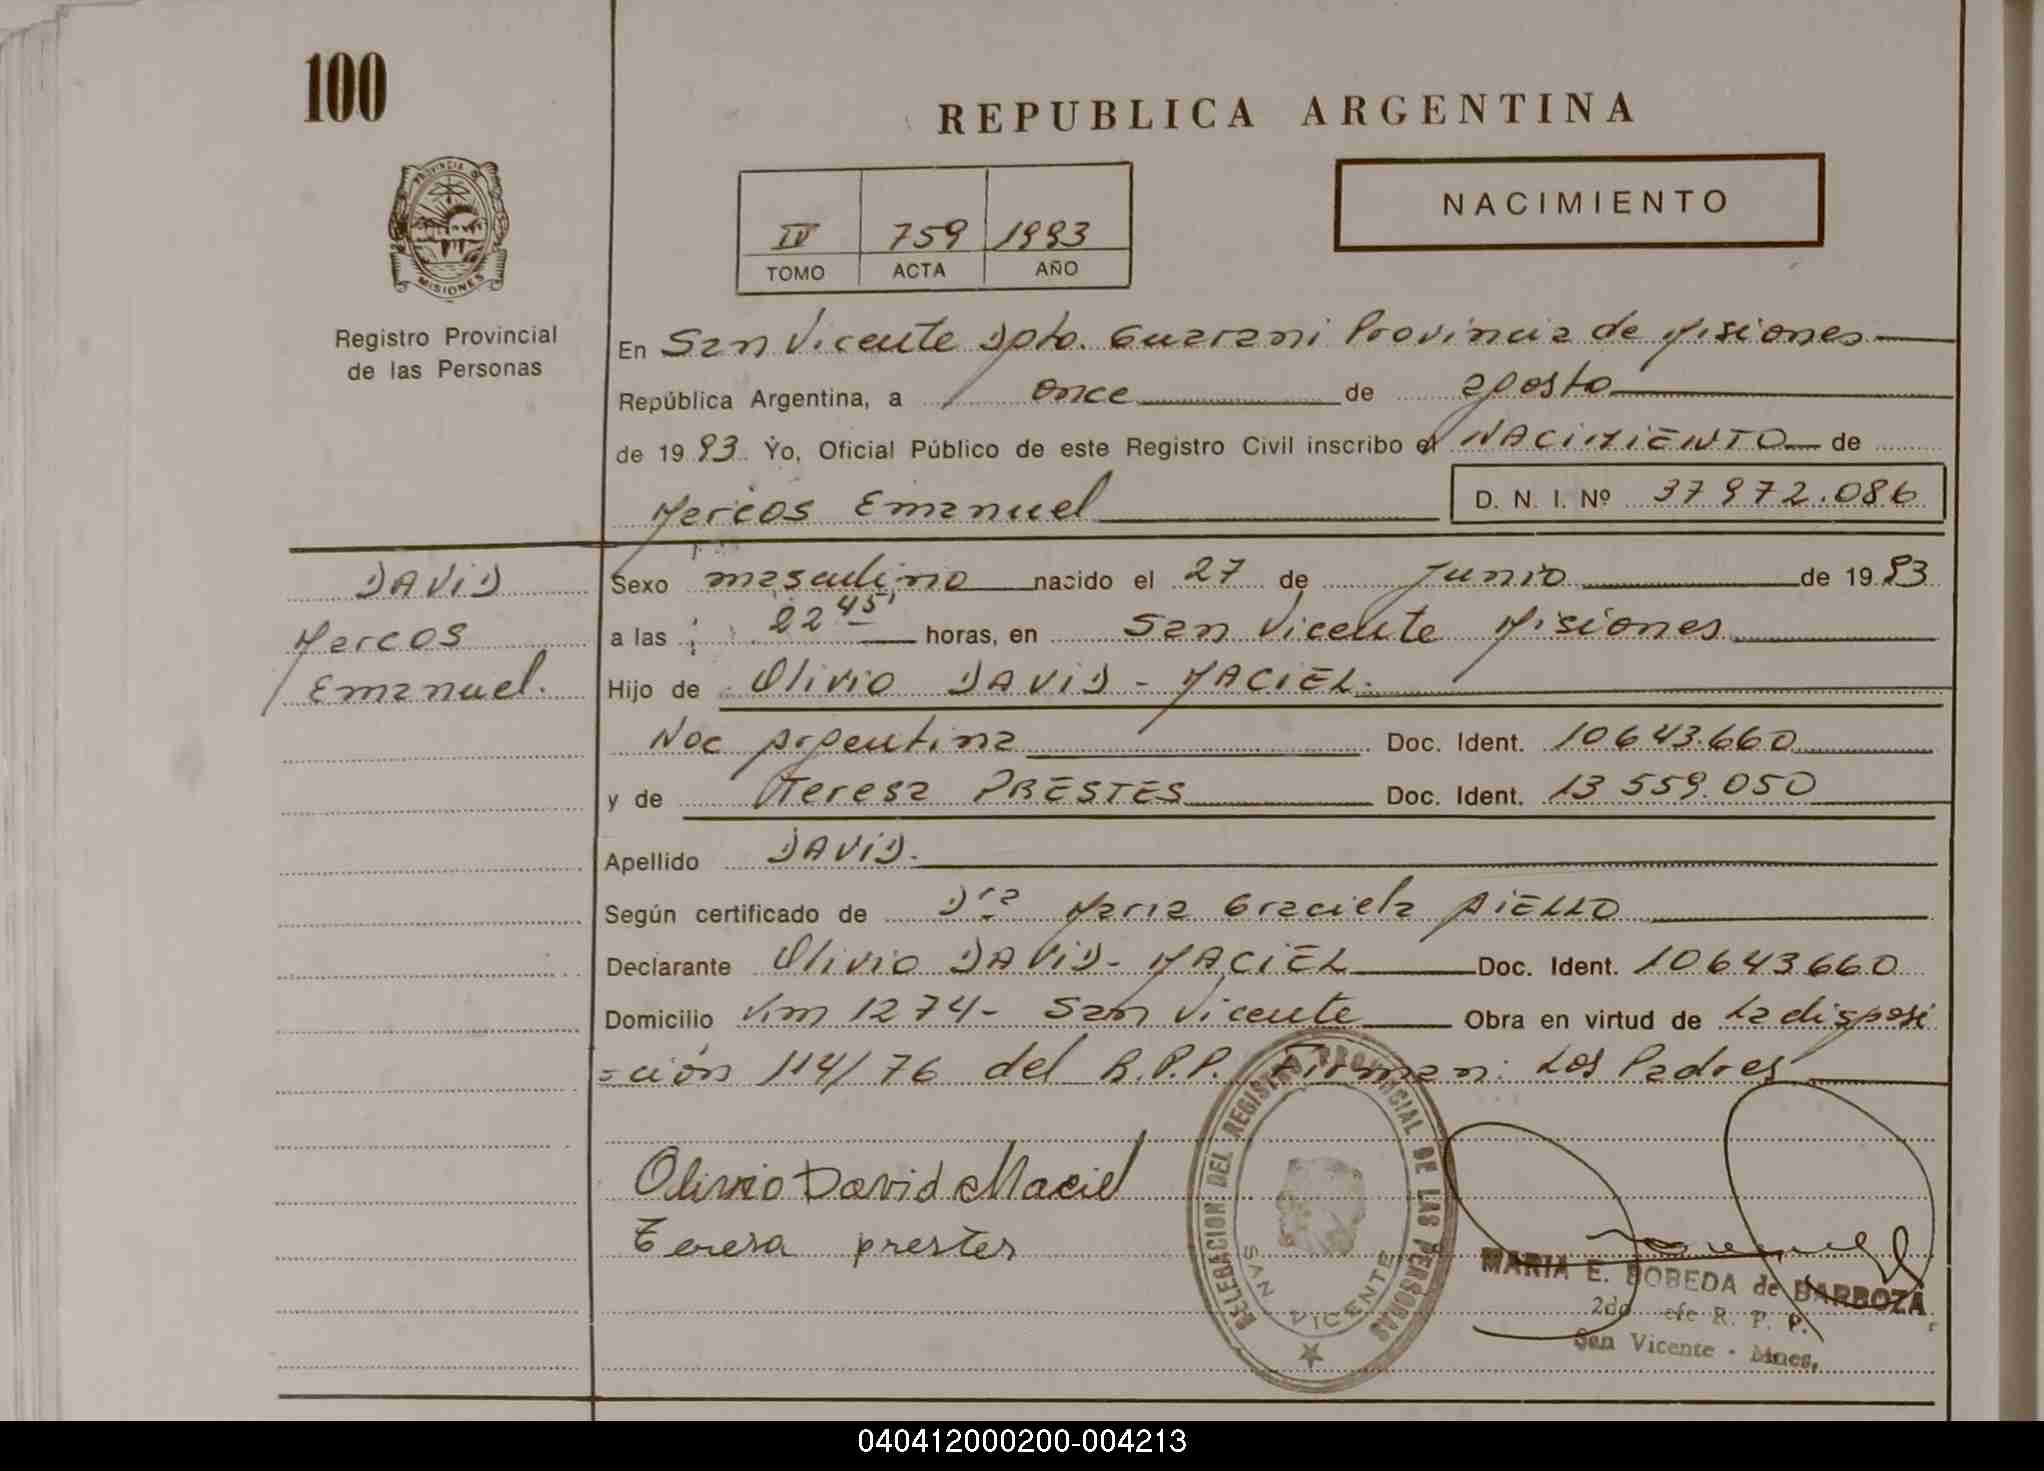 100
REPUBLICA ARGENTINA
PROVINCIA D
MISIONES
Registro Provincial
de las Personas
NACIMIENTO
IV 759 1993
TOMO ACTA AÑO
En San Vicente Dpto. Guarani Provincia de Misiones
República Argentina, a once de agosto
de 19 93 Yo, Oficial Público de este Registro Civil inscribo el NACIMIENTO de
Marcos Emanuel D. N. I. Nº 37972.086
DAVID
Marcos
Emanuel.
Sexo masculino nacido el 27 de Junio de 19 93
a las 22 45' horas, en San Vicente Misiones
Hijo de Olivio DAVID - MACIEL.
Nac argentina Doc. Ident. 10643.660
y de Teresa PRESTES Doc. Ident. 13 559.050
Apellido DAVID.
Según certificado de Dra Maria Graciela AIELLO
Declarante Olivio DAVID - MACIEL Doc. Ident. 10643660
Domicilio Km 1274 - San Vicente Obra en virtud de la disposi
=ción 114/76 del R.P.P. Firman: Los Padres
Olivio David Maciel
Teresa prestes
DELEGACION DEL REGISTRO PROVINCIAL DE LAS PERSONAS
SAN VICENTE
MARIA E. BOBEDA de BARBOZA
2do efe R. P. P.
San Vicente - Mnes.
040412000200-004213